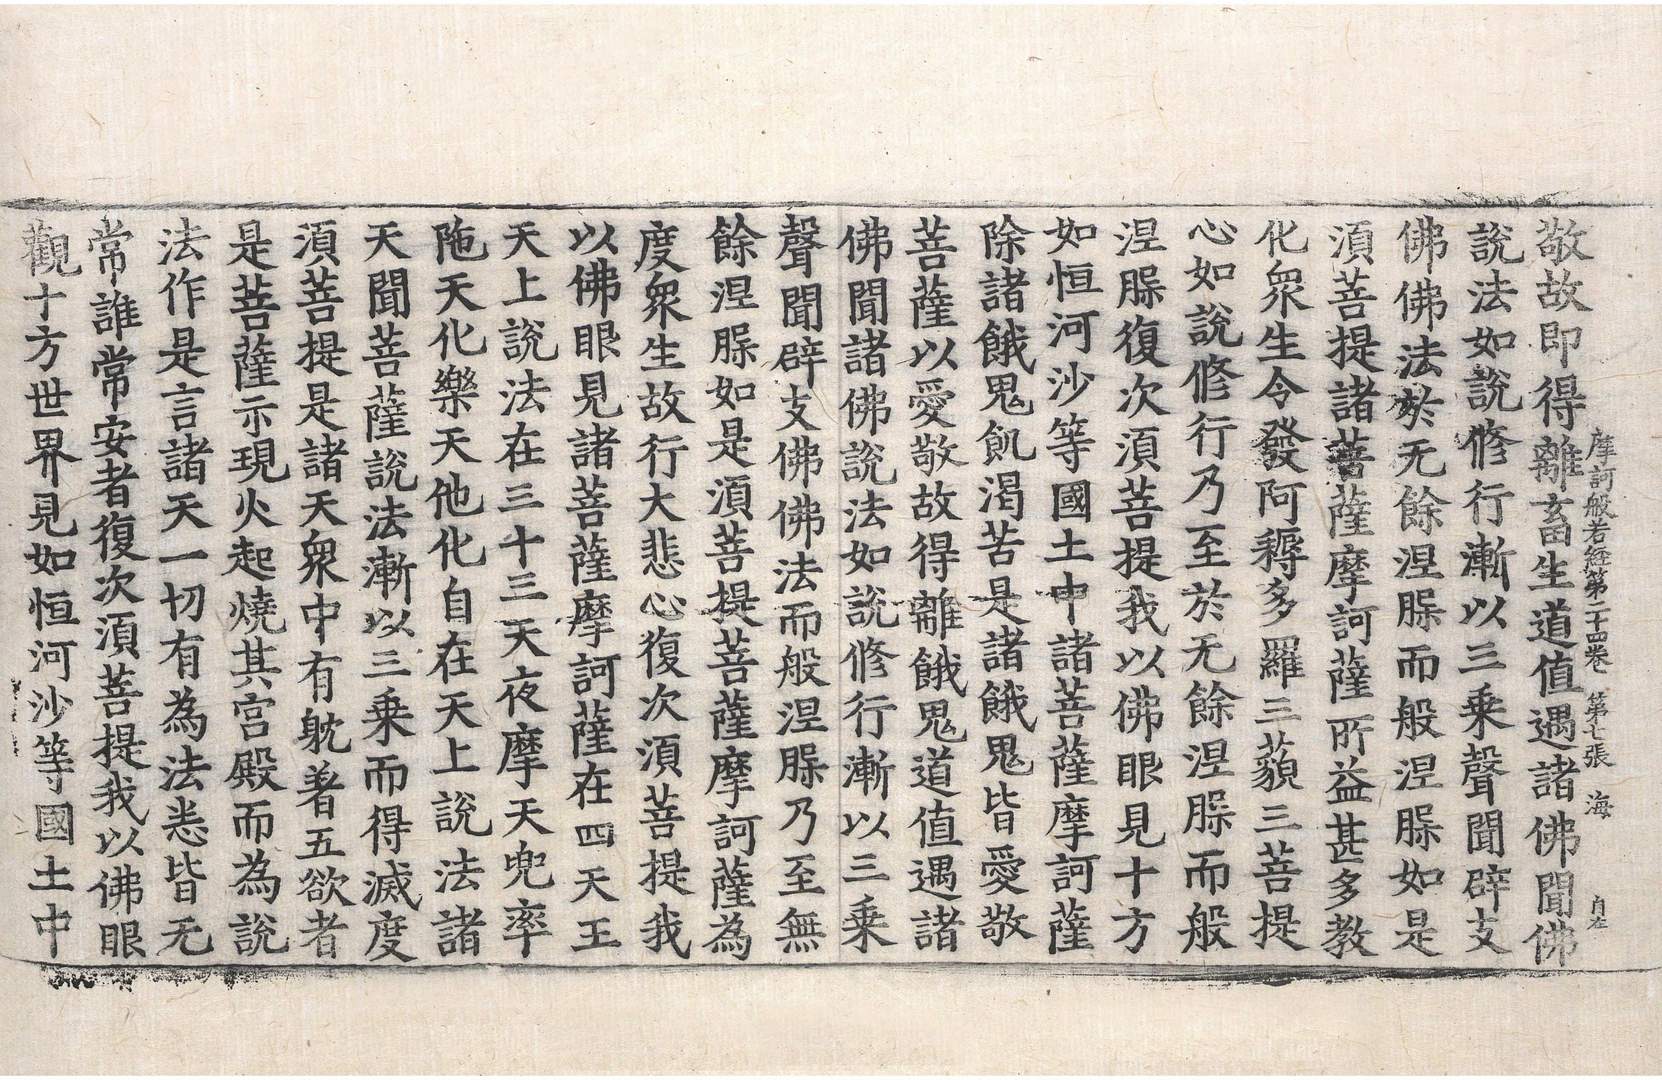 摩訶般若經第二十四卷 第七張 海 自在
敬故即得離畜生道值遇諸佛聞佛
說法如說修行漸以三乘聲聞辟支
佛佛法於无餘涅槃而般涅槃如是
須菩提諸菩薩摩訶薩所益甚多教
化衆生令發阿耨多羅三藐三菩提
心如說修行乃至於无餘涅槃而般
涅槃復次須菩提我以佛眼見十方
如恒河沙等國土中諸菩薩摩訶薩
除諸餓鬼飢渴苦是諸餓鬼皆愛敬
菩薩以愛敬故得離餓鬼道值遇諸
佛聞諸佛說法如說修行漸以三乘
聲聞辟支佛佛法而般涅槃乃至無
餘涅槃如是須菩提菩薩摩訶薩為
度衆生故行大悲心復次須菩提我
以佛眼見諸菩薩摩訶薩在四天王
天上說法在三十三天夜摩天兜率
陁天化樂天他化自在天上說法諸
天聞菩薩說法漸以三乘而得滅度
須菩提是諸天衆中有躭著五欲者
是菩薩示現火起燒其宮殿而為說
法作是言諸天一切有為法悉皆无
常誰常安者復次須菩提我以佛眼
觀十方世界見如恒河沙等國土中